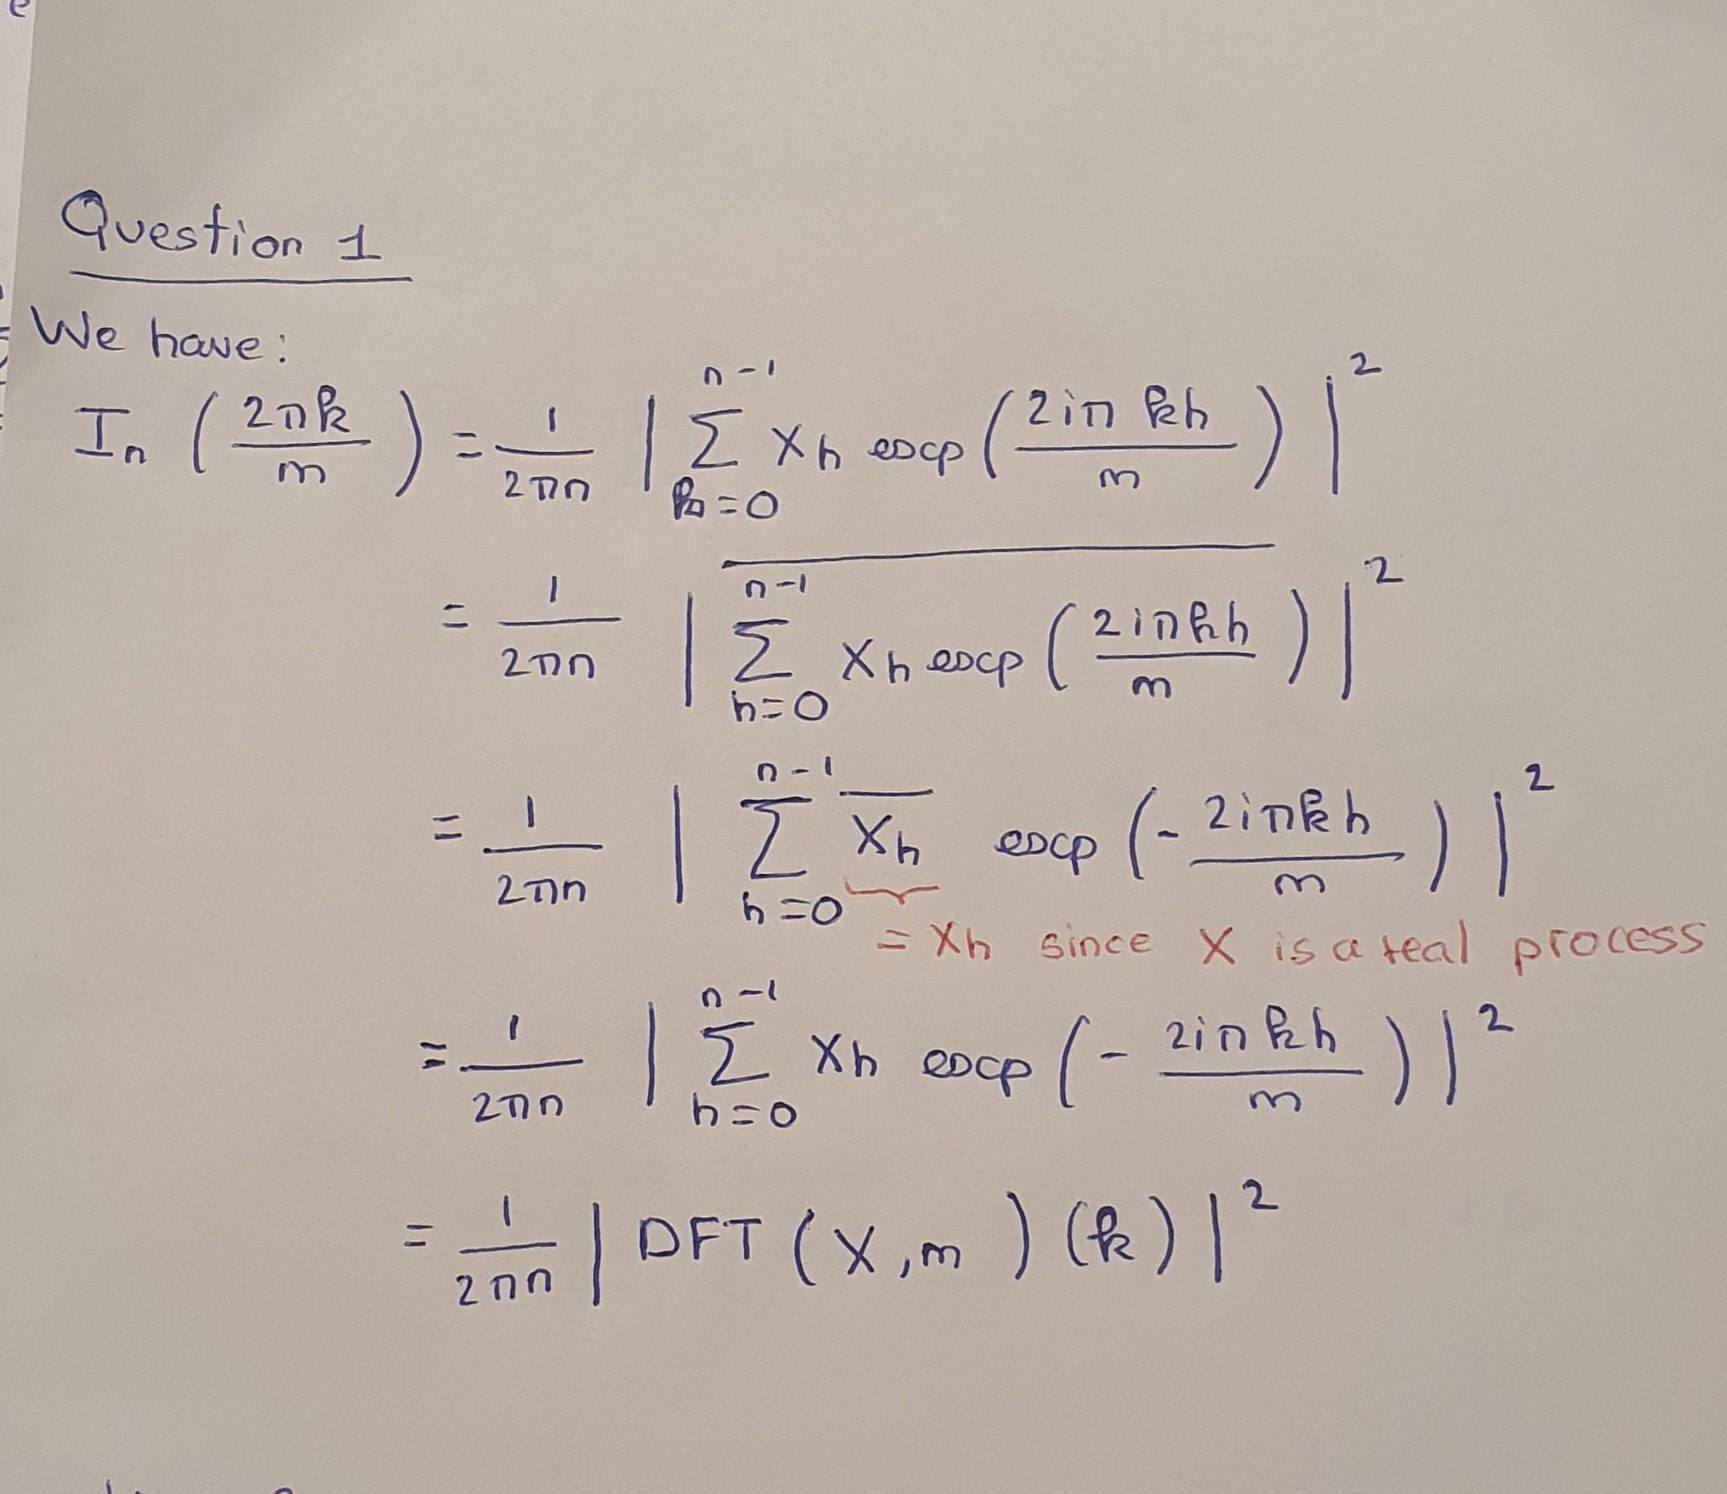 Question 1
We have:
I_n (2πk/m) = 1/(2πn) | Σ_{k=0}^{n-1} X_h exp(2iπkh/m) |²
= 1/(2πn) | \overline{Σ_{h=0}^{n-1} X_h exp(2iπkh/m)} |²
= 1/(2πn) | Σ_{h=0}^{n-1} \overline{X_h} exp(-2iπkh/m) |²
= X_h since X is a real process
= 1/(2πn) | Σ_{h=0}^{n-1} X_h exp(-2iπkh/m) |²
= 1/(2πn) | DFT(X,m)(k) |²